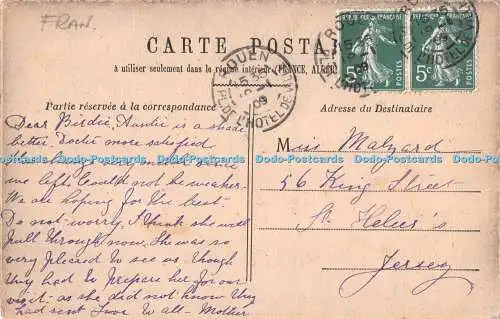 FRAN.
CARTE POSTA
à utiliser seulement dans le régime intérieur (FRANCE, ALGÉR
RÉPUBLIQUE FRANÇAISE
5c POSTES
RÉPUBLIQUE FRANÇAISE
5c POSTES
ROUEN
09
PL. DE L'HOTEL DE
Partie réservée à la correspondance
Adresse du Destinataire
Dear Birdie, Auntie is a shade
better. Doctor more satisfied
we left. Could not be weaker.
We are hoping for the best.
Do not worry, I think she will
pull through now. She was so
very pleased to see us, though
they had to prepare her for our
visit, as she did not know they
had sent. Love to all. Mother
Miss Malzard
56 King Street
St. Helier's
Jersey
Dodo-Postcards Dodo-Postcards Dodo-Postcards Dodo-Postcards Dodo-Postcards Dodo-Postcards